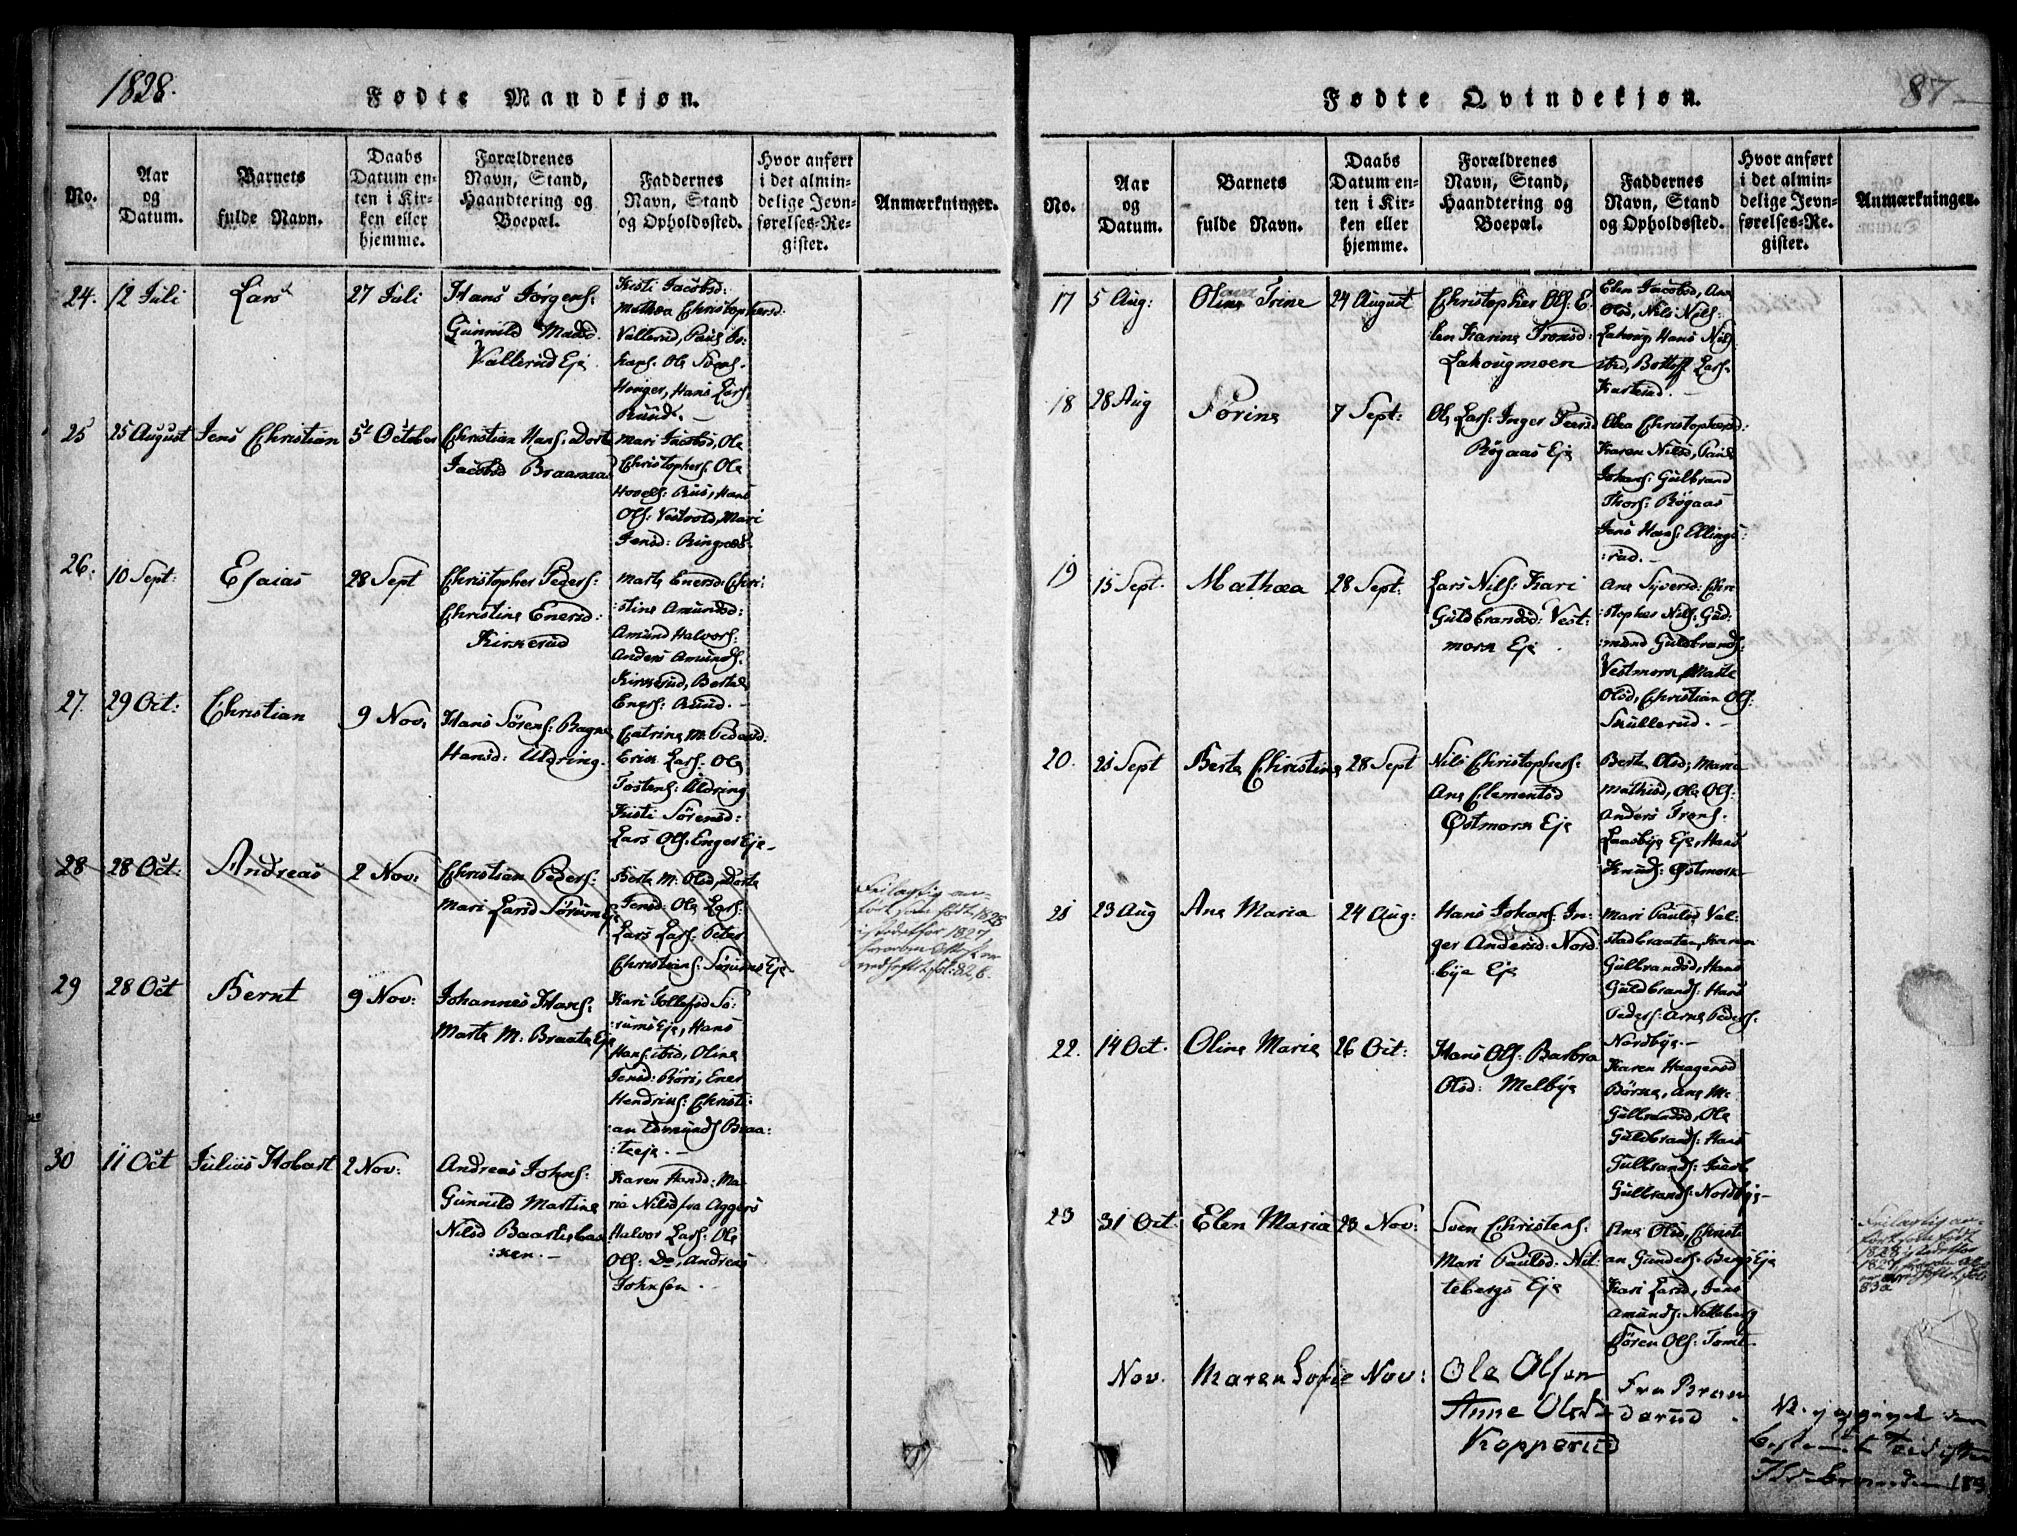 1828.
Fødte Mandkjøn.
No.
Aar
og
Datum.
Barnets
fulde Navn.
Daabs
Datum en-
ten i Kir-
ken eller
hjemme.
Forældrenes
Navn, Stand,
Haandtering og
Boepæl.
Faddernes
Navn, Stand
og Opholdssted.
Hvor anført
i det almin-
delige Jevn-
førelses-Re-
gister.
Anmærkninger.
24. 12 Juli Lars 27 Juli
Hans Jørgens:
Gunnild Madsd.
Vallerud Eje
Kisti Jacobsd:
Mathea Christophersd:
Vallerud, Paul
Hans: Ole
Hans Lars:
Ruud. -
25 25 August Jens Christian 5t October
Christian Hans: Dorte
Jacobsd Braanaas
Mari Jacobsd, Ole
Christophers: Ole
Hovels: Ruus, Hans
Ols: Vestvold, Mari
Jensd: Ringnæs.
26. 10 Sept: Esaias 28 Sept
Christopher Peders:
Christine Enersd:
Kirkerud
Marte Enersd: Chri:
:stine Amundsd:
Amund Halvors:
Anders Amunds.
Kirkerud, Bertel
Engs: Ruud. -
27. 29 Oct: Christian 9 Nov:
Hans Sørens: Ragne
Hansd: Uldring.
Catrine M: Pedersd:
Erik Lars: Ole
Tostens: Uldring
Kisti Sørensd:
Lars Ols: Enger Eje -
28 28 Oct: Andreas 2 Nov:
Christian Peders:
Mari Larsd Sørum Eje
Berte M: Olsd, Dorte
Jensd: Ole Lars:
Lars Lars: Peter
Christians: Sørums Eje
Feilagtig an-
ført som født 1828
istedetfor 1827
29 28 Oct Bernt 9 Nov:
Johannes Hans:
Marte M: Braate Eje
Kari Tollefsd Sø-
:rums Eje, Hans
Hans: ibid, Oline
Jensd: Røri, Ener
Hendriks: Christi:
:an Edmunds Braa:
:teeje. -
30 11 Oct Julius Hobart 2 Nov:
Andreas Johns:
Gunnild Martine
Nilsd Baastadbak
:ken. -
Karen Hansd: Ma-
ria Nilsd fra Aggers
Halvor Lars: Ole
Ols: Do, Andreas
Johnsen. -
87
Fødte Qvindekjøn.
No.
Aar
og
Datum.
Barnets
fulde Navn.
Daabs
Datum en-
ten i Kir-
ken eller
hjemme.
Forældrenes
Navn, Stand,
Haandtering og
Boepæl.
Faddernes
Navn, Stand
og Opholdssted.
Hvor anført
i det almin-
delige Jevn-
førelses-Re-
gister.
Anmærkninger.
17 5 Aug: Oline Trine 24 August
Christopher Ols: E-
len Karine Tronsd:
Lakougmoen
Elen Jacobsd, Ane
Olsd, Nils Nils:
Lakoug Hans Nils
ibid, Lars.
Karterud. -
18 28 Aug Sørine 7 Sept:
Ole Lars: Inger Pedersd
Røgaas Eje
Olea Christophersd:
Karen Nilsd, Paul
Johans: Gulbrand
Thors: Røgaas
Jens Hans: Ellings
:rud. -
19 15 Sept. Mathæa 28 Sept:
Lars Nils: Kari
Guldbrandsd: Vest-
mork Eje.
Ane Syversd: Chri
:stopher Nils: Gud-
:mund Guldbrands:
Vestmork, Marte
Olsd, Christian Ols:
Skullerud. -
20. 21 Sept Berte Christine 28 Sept
Nils Christophers:
Ane Clementsd
Østmork Eje
Berte Olsd; Maria
Mathisd, Ole Ols:
Anders Trons:
Laasbye Eje, Hans
Knuds: Østmork -
21 23 Aug Ane Maria 24 Aug:
Hans Johans: In-
ger Andersd: Nord
:bye Eje
Mari Paulsd Val-
:stadbraaten, Karen
Gulbrandsd, Hans
Guldbrands: Hans
Peders: Arne Peders.
Nordbye. -
22. 14 Oct. Oline Marie 26 Oct:
Hans Ols: Barbra
Olsd: Melbye
Karen Haagensd
Børne, Ane M:
Gulbrandsd, Ole
Guldbrands: Hans
Gulbrands: Jacob
Gulbrands: Nordbye -
23 31 Oct: Elen Maria 23 Nov:
Sven Christens:
Mari Paulsd: Nit-
tebergs Eje
Ane Olsd, Christi
an Gunders: Bergs Eje
Kari Larsd, Jens
Amunds: Nitteberg
Søren Ols: Tomt -
Feilagtig an-
ført som født
1828 istedetfor
1827
Nov. Maren Sofie Nov:
Ole Olsen
Anne Olsd
Kopperud
Fra Bran
derud.